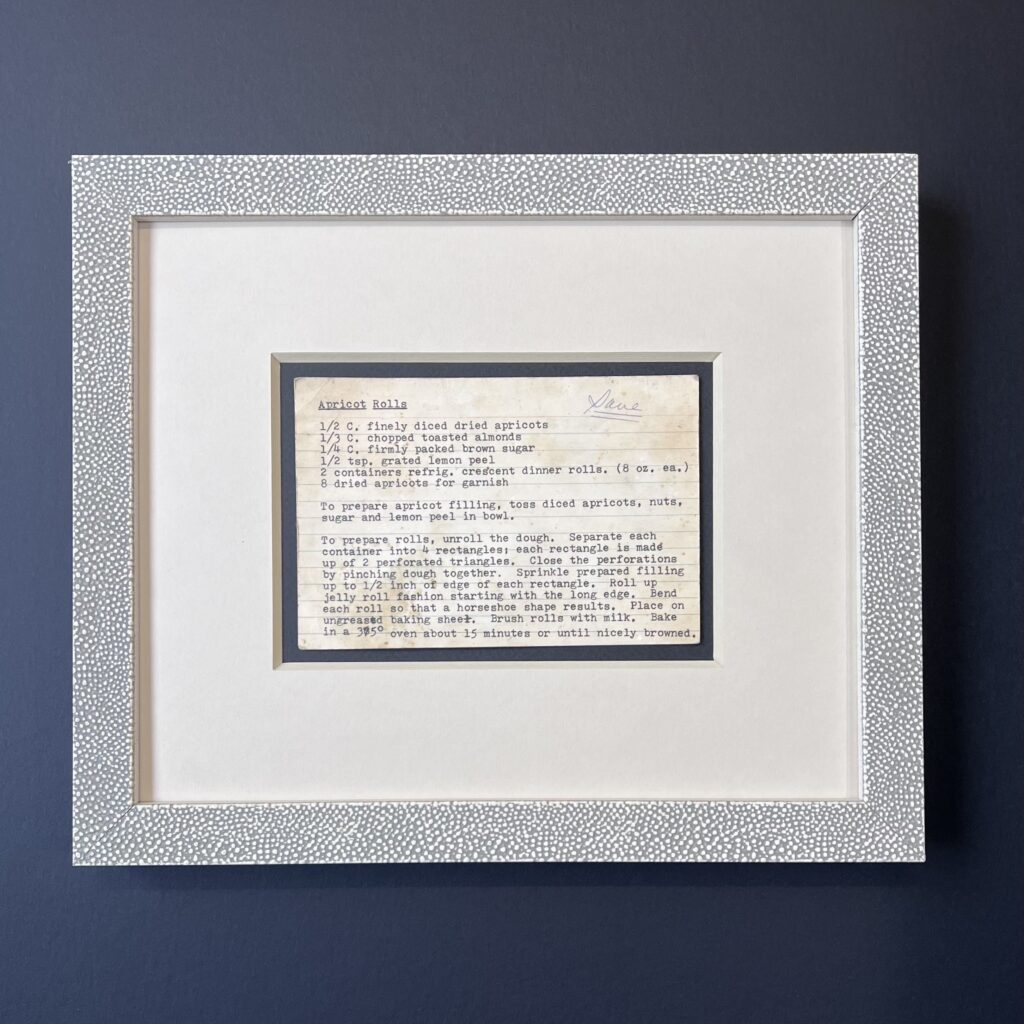 Apricot Rolls
Save
1/2 C. finely diced dried apricots
1/3 C. chopped toasted almonds
1/4 C. firmly packed brown sugar
1/2 tsp. grated lemon peel
2 containers refrig. crescent dinner rolls. (8 oz. ea.)
8 dried apricots for garnish
To prepare apricot filling, toss diced apricots, nuts,
sugar and lemon peel in bowl.
To prepare rolls, unroll the dough. Separate each
container into 4 rectangles; each rectangle is made
up of 2 perforated triangles. Close the perforations
by pinching dough together. Sprinkle prepared filling
up to 1/2 inch of edge of each rectangle. Roll up
jelly roll fashion starting with the long edge. Bend
each roll so that a horseshoe shape results. Place on
ungreased baking sheet. Brush rolls with milk. Bake
in a 375° oven about 15 minutes or until nicely browned.